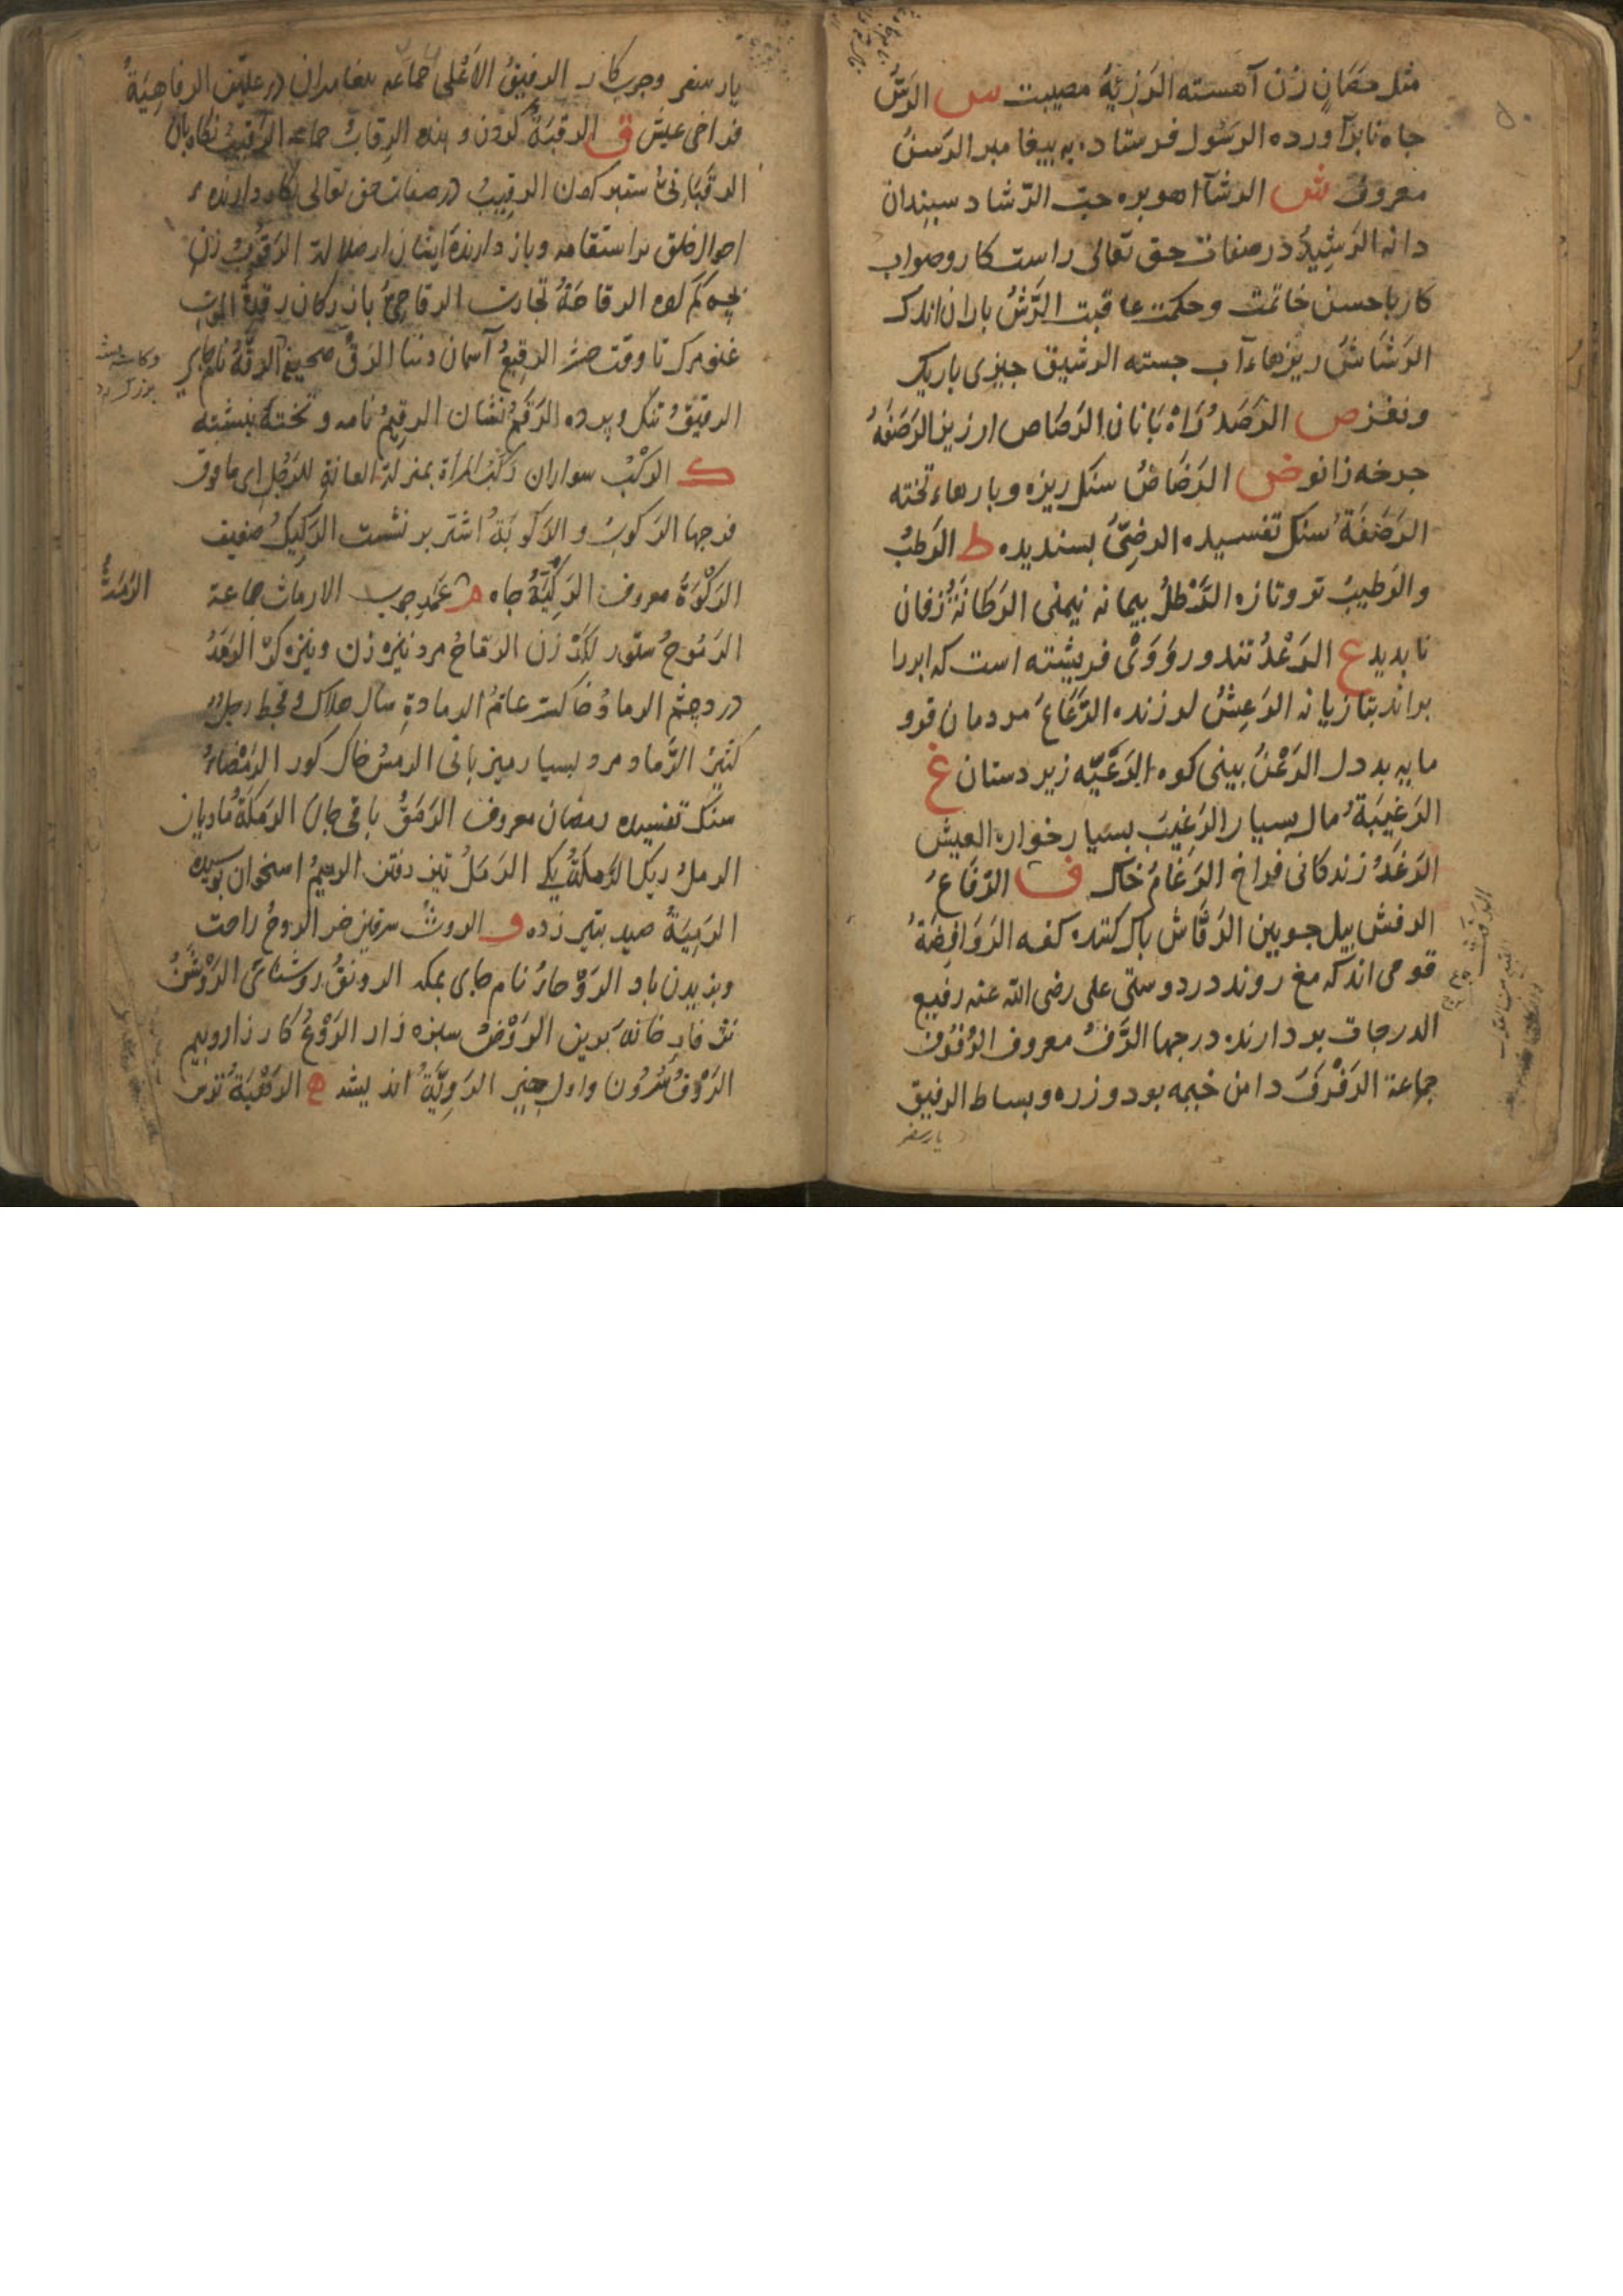 مثل حصان زن آهسته الرزية مصيبت س الرس
جاه نابرآورده الرسول فرستاده به بيغامبر الرسن
معروف ش الرشآ اهوبره حب الرشاد سبندان
دانه الرشيد در صفات حق تعالى راست كار وصواب
كار باحسن خاتمت وحكمت عاقبت الرش باران اندك
الرشاش ريزهاء آب جسته الرشيق جيزى باريك
ونغز ص الرصد راه بانان الرصاص ارزيز الرصفة
جرخه زانو ض الرضاض سنك ريزه وبارهاء تخته
الرضفة سنك تفسيده الرضى بسنديده ط الرطب
والرطيب تر وتازه الرطل بيمانه نيمنى الرطانة زفان
نابديد ع الرعد تندور وروى فريشته است كه ابررا
براند بتازيانه الرعش لرزنده الرعاع مردمان فرو
مايه بددل الرعن بينى كوه الرعية زير دستان غ
الرغيبة مال بسيار الرغيب بسيار خواره العيش
الرغد زندكانى فراخ الرغام خاك ف الرفاع
الرفش بيل جوبين الرفاش باك كننده كفه الروافضة
قومى اند كه مغ روند در دوستى على رضى الله عنه رفيع
الدرجات بردارنده درجها الرف معروف الرفوف
جماعة الرفرف دامن خيمه بود وزره وبساط الرفيق
يار سفر
يار سفر وجرب كار الرفيق الاعلى جماعه الرفاهية
فراخى عيش ق الرقبة كردن و بنده الرقاب جماعه الرقيب نكاه بان
الرقبانى ستبر كردن الرقيب در صفات حق تعالى نكاه دارنده
احوال خلق براستقامه وباز دارنده ايشان از ضلالة الرقوب زن
بچه كم الرقاحة تجارت الرقاحى بازركان رقدة الموت
غنو مرك تا وقت حشر الرقيع آسمان دنيا الرق صحيفه الرقة نام جاى
الرقيق تنك وبرده الرقم نشان الرقيم نامه و تختة نبشته
ك الركب سواران ركب المرأة بمنزلة العانة للرجل اى ما فوق
فرجها الركوب والركوبة اشتر برنشست الركيك ضعيف
الركوة معروف الركية جاه م عمد جرب الارماث جماعة
الرموح ستور لكد زن الرماح مرد نيزه زن ونيزه كر الرمد
درد چشم الرماد خاكستر عام الرمادة سال هلاك و قحط رجل
كثير الرماد مرد بسيار ميزبانى الرمس خاك كور الرمضاء
سنك تفسيده رمضان معروف الرمق باقى جان الرمكة ماديان
الرمل ريك الرملة يكى الرمل تيز رفتن الرميم استخوان بوسيده
الرمية صيد بتير زده و الروث سركين خر الروح راحت
وبزيدن باد الروحاء نام جاى بمكه الرونق روشنائى الروشن
خانه برين الروض سبزه زار الروع كار زار وبيم
الروق سرون واول چيز الروية انديشه ه الرهبة ترس